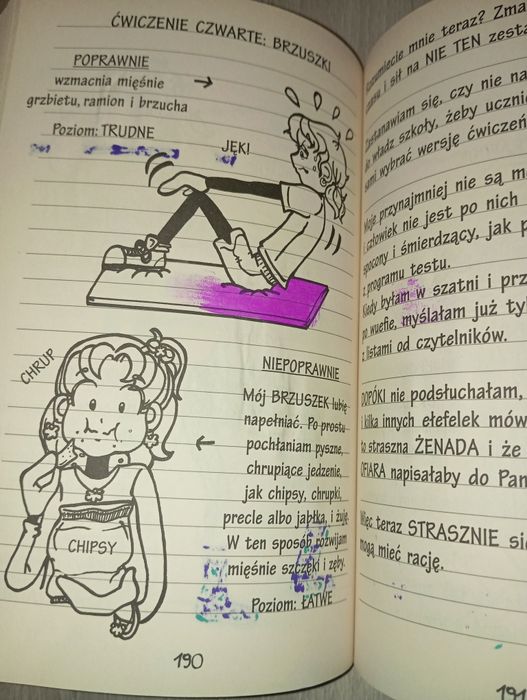 ĆWICZENIE CZWARTE: BRZUSZKI
POPRAWNIE
wzmacnia mięśnie
grzbietu, ramion i brzucha
Poziom: TRUDNE
JĘK!
CHRUP
CHIPSY
NIEPOPRAWNIE
Mój BRZUSZEK lubię
napełniać. Po prostu
pochłaniam pyszne,
chrupiące jedzenie,
jak chipsy, chrupki,
precle albo jabłka, i żuję.
W ten sposób rozwijam
mięśnie szczęki i zęby.
Poziom: ŁATWE
190
mnie teraz?
i sił na NIE TEN
się, czy nie
władz szkoły, żeby
wybrać wersję
przynajmniej nie są
i człowiek nie jest po nich
spocony i śmierdzący, jak
z programu testu.
Kiedy byłam w szatni i
po wuefie, myślałam już
z listami od czytelników.
DOPÓKI nie podsłuchałam,
i kilka innych
to straszna ŻENADA i że
OFIARA napisałaby do
Więc teraz STRASZNIE
mogą mieć rację.
191